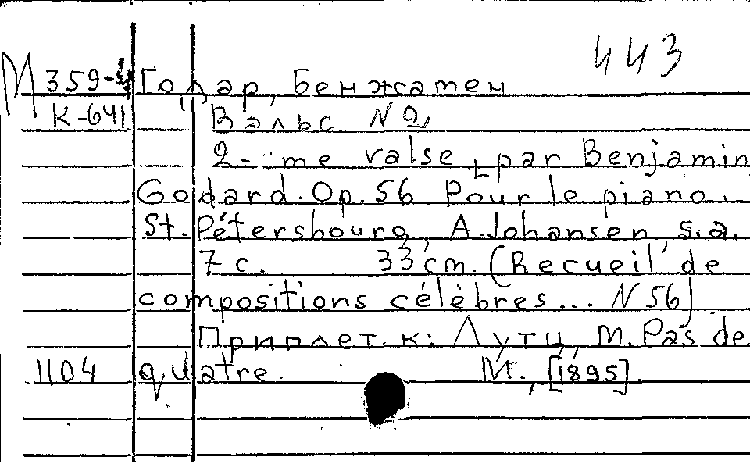 443
М 359-4 Годар, Бенжамен
К-641 Вальс N 2,
2-ème valse, par Benjamin
Godard. Op. 56 Pour le piano.
St. Pétersbourg, A. Johansen, s.a.
7 с. 33 cm. (Recueil de
compositions célèbres... N 56)
Приплет. к: Лутц, М. Pas de
1104 quatre. М., [1895]